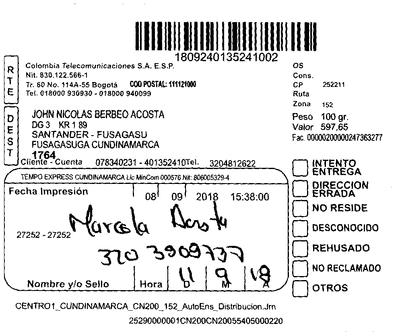 1809240135241002
RTE
Colombia Telecomunicaciones S.A. E.S.P.
Nit. 830.122.566-1
Tr. 60 No. 114A-55 Bogotá COD POSTAL: 111121000
Tel. 018000 930930 - 018000 940099
OS
Cons.
CP 252211
Ruta
Zona 152
Peso 100 gr.
Valor 597,65
Fac. 00000200000247363277
DEST
JOHN NICOLAS BERBEO ACOSTA
DG 3 KR 1 89
SANTANDER - FUSAGASU
FUSAGASUGA CUNDINAMARCA
1764
Cliente - Cuenta 078340231 - 401352410 Tel. 3204812622
TEMPO EXPRESS CUNDINAMARCA Lic MinCom 000576 Nit: 806005329-4
Fecha Impresión 08 09 2018 15:38:00
Marcela Acosta
27252 - 27252
320 3909737
11 9 18
Nombre y/o Sello Hora D M A
INTENTO ENTREGA
DIRECCION ERRADA
NO RESIDE
DESCONOCIDO
REHUSADO
NO RECLAMADO
OTROS
CENTRO1_CUNDINAMARCA_CN200_152_AutoEns_Distribucion.Jrn
25290000001CN200CN20055405000220